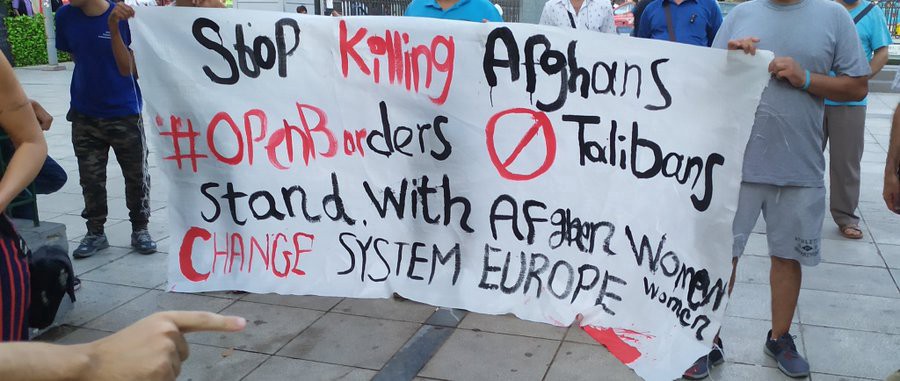 Stop Killing Afghans
#OPenBorders Talibans
Stand With AFghen Women
Women
CHANGE SYSTEM EUROPE